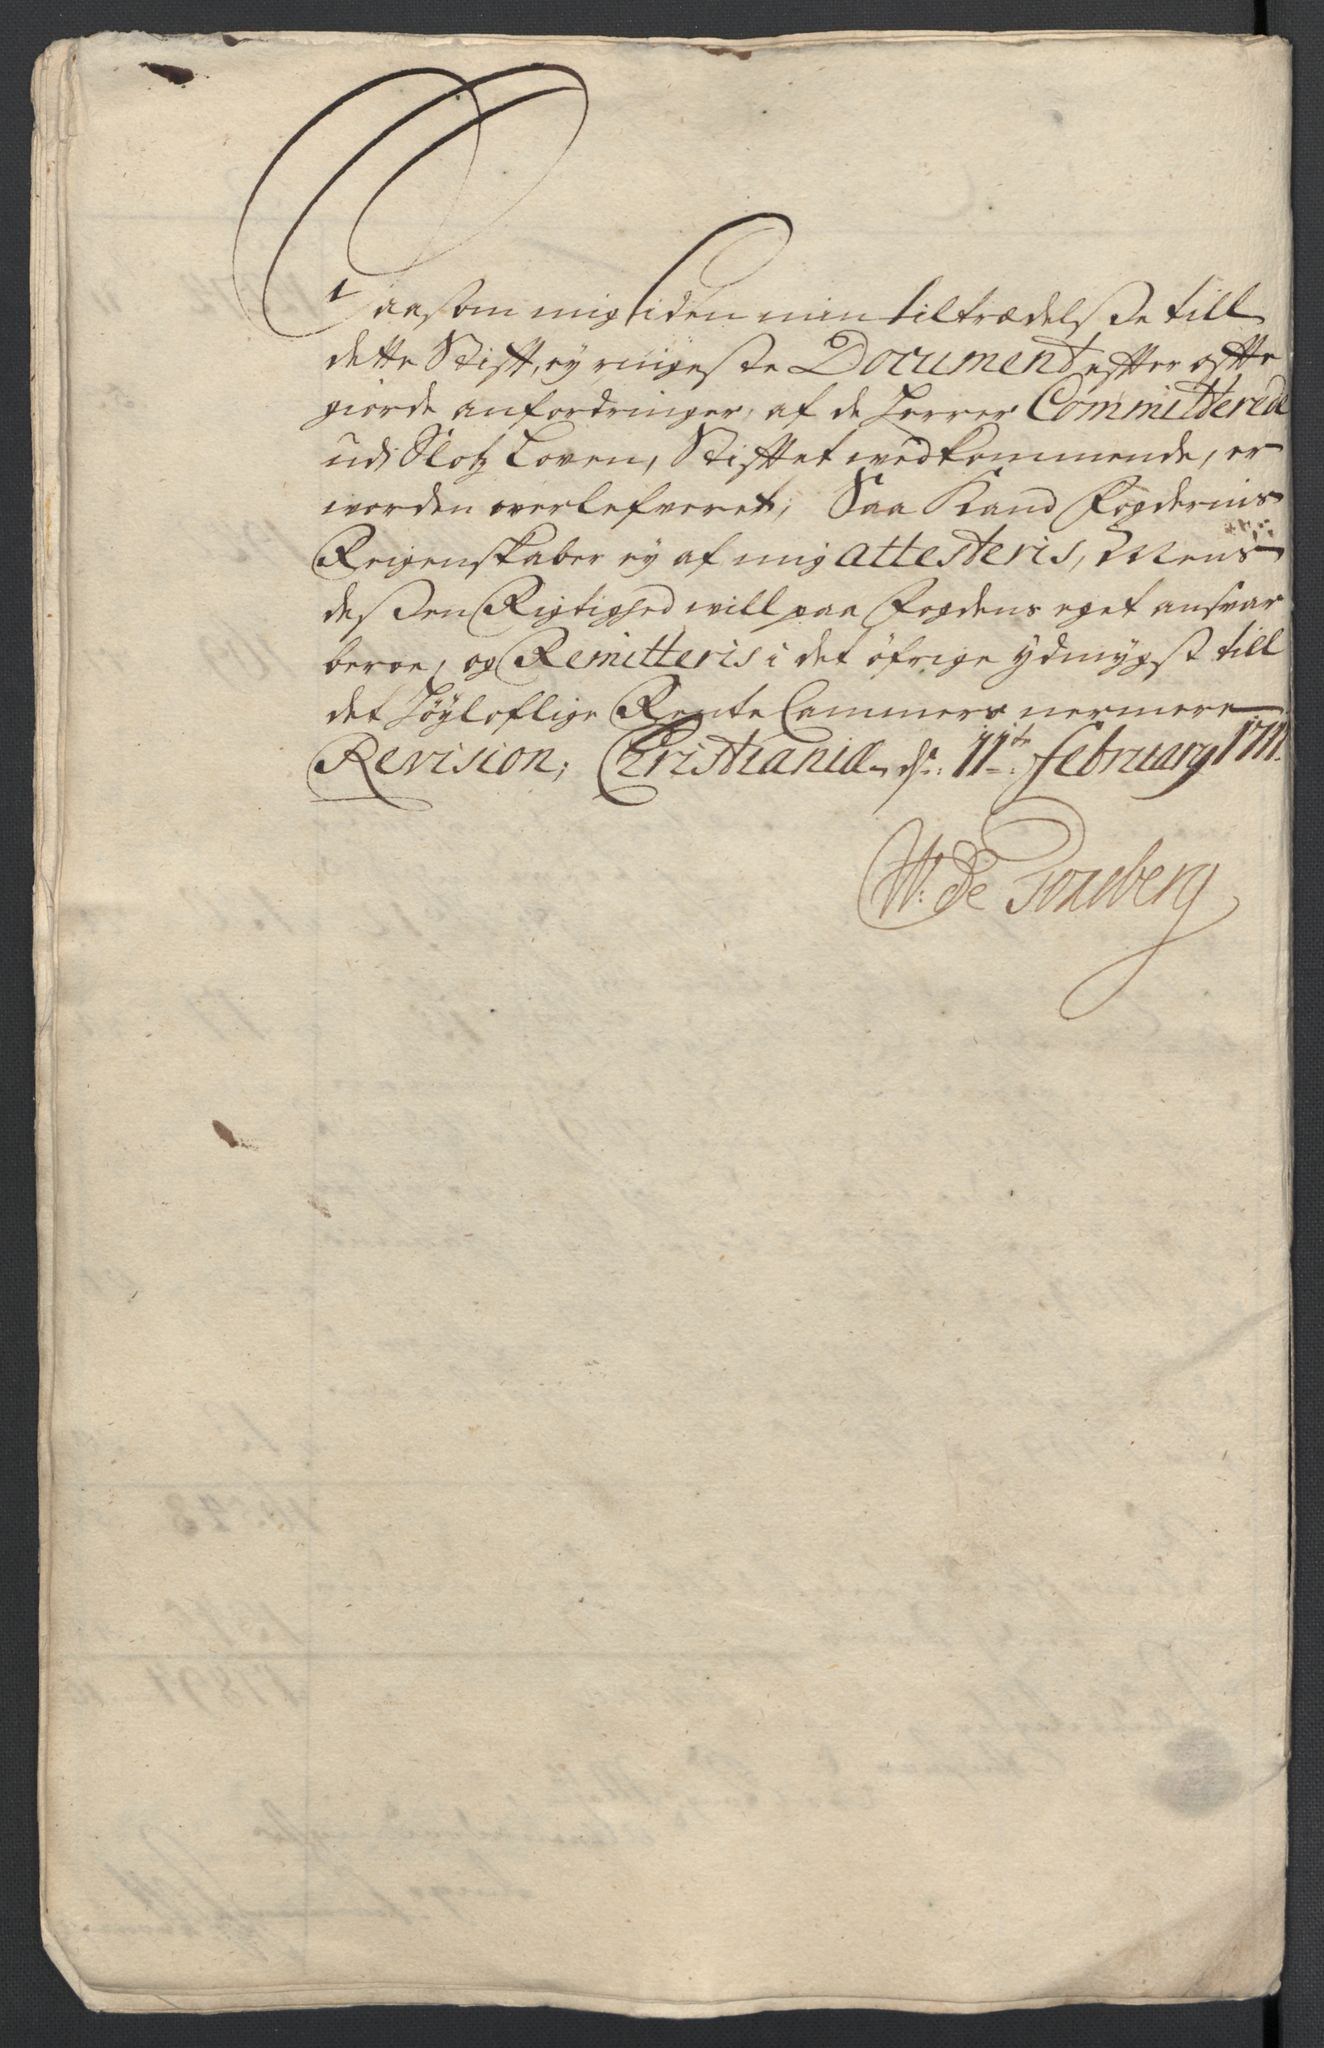 Saasom mig siden min tiltrædelsse till
dette Stift, ey ringeste Document effter offte
giorde anfordringer, af de Herrer Committerede
udi Slotz Loven, Stifftet vedkommende, er
worden ofverlefveret; Saa Kand Fogdernis
Regenskaber ey af mig attesteris, Mens
dessen Rigtighed will paa Fogdens eget ansvar
beroe, og Remitteris i det öfrige ydmygst till
det Höyloflige Rente Cammers nermere
Revision; Christiania d: 11te february 1711.
W: De Tonsberg